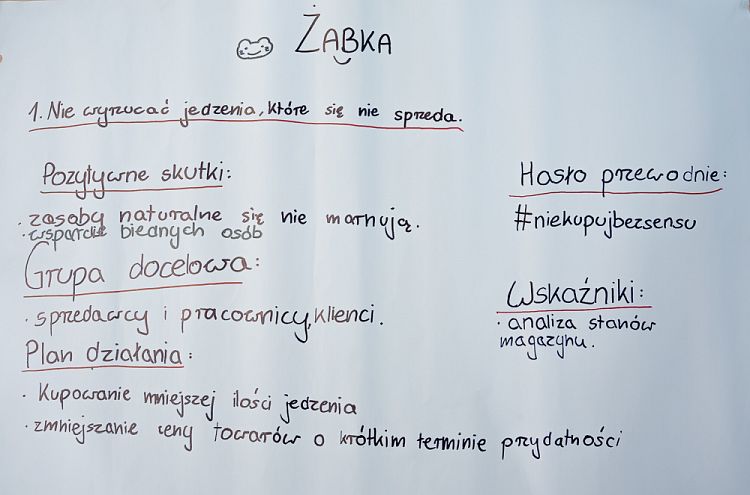 ŻABKA
1. Nie wyrzucać jedzenia, które się nie sprzeda.
Pozytywne skutki:
· zasoby naturalne się nie marnują.
· wsparcie biednych osób
Grupa docelowa:
· sprzedawcy i pracownicy, klienci.
Plan działania:
· Kupowanie mniejszej ilości jedzenia
· zmniejszanie ceny towarów o krótkim terminie przydatności
Hasło przewodnie:
#niekupujbezsensu
Wskaźniki:
· analiza stanów
magazynu.